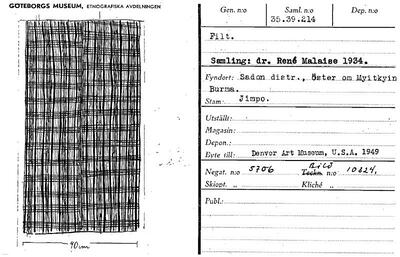 GÖTEBORGS MUSEUM, ETNOGRAFISKA AVDELNINGEN
90 cm
Gen. n:o Saml. n:o Dep. n:o
35.39.214
Filt.
Samling: dr. René Malaise 1934.
Fyndort: Sadon distr., öster om Myitkyin
Burma.
Stam: Jimpo.
Utställt:
Magasin:
Depon.:
Byte till: Denver Art Museum, U.S.A. 1949
Negat. n:o 5706 Teckn. n:o 10224.
Skiopt. „ Kliché „
Publ.: